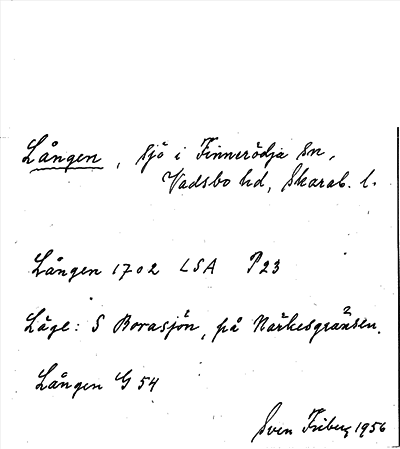 Lången, sjö i Finnerödja sn,
Vadsbo hd, Skarab. l.
Lången 1702 LSA P23
Läge: S Borasjön, på Närkesgränsen.
Lången G 54
Sven Friberg 1956